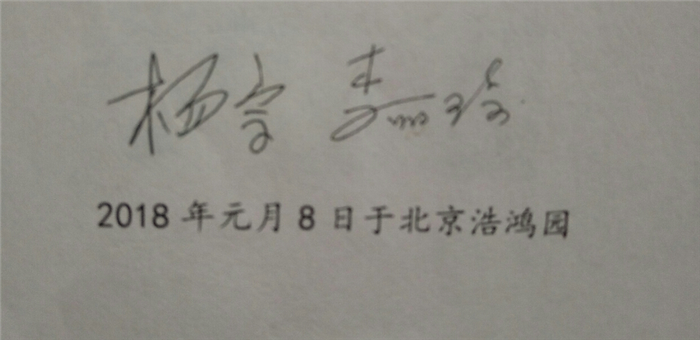 杨
2018年元月8日于北京浩鸿园